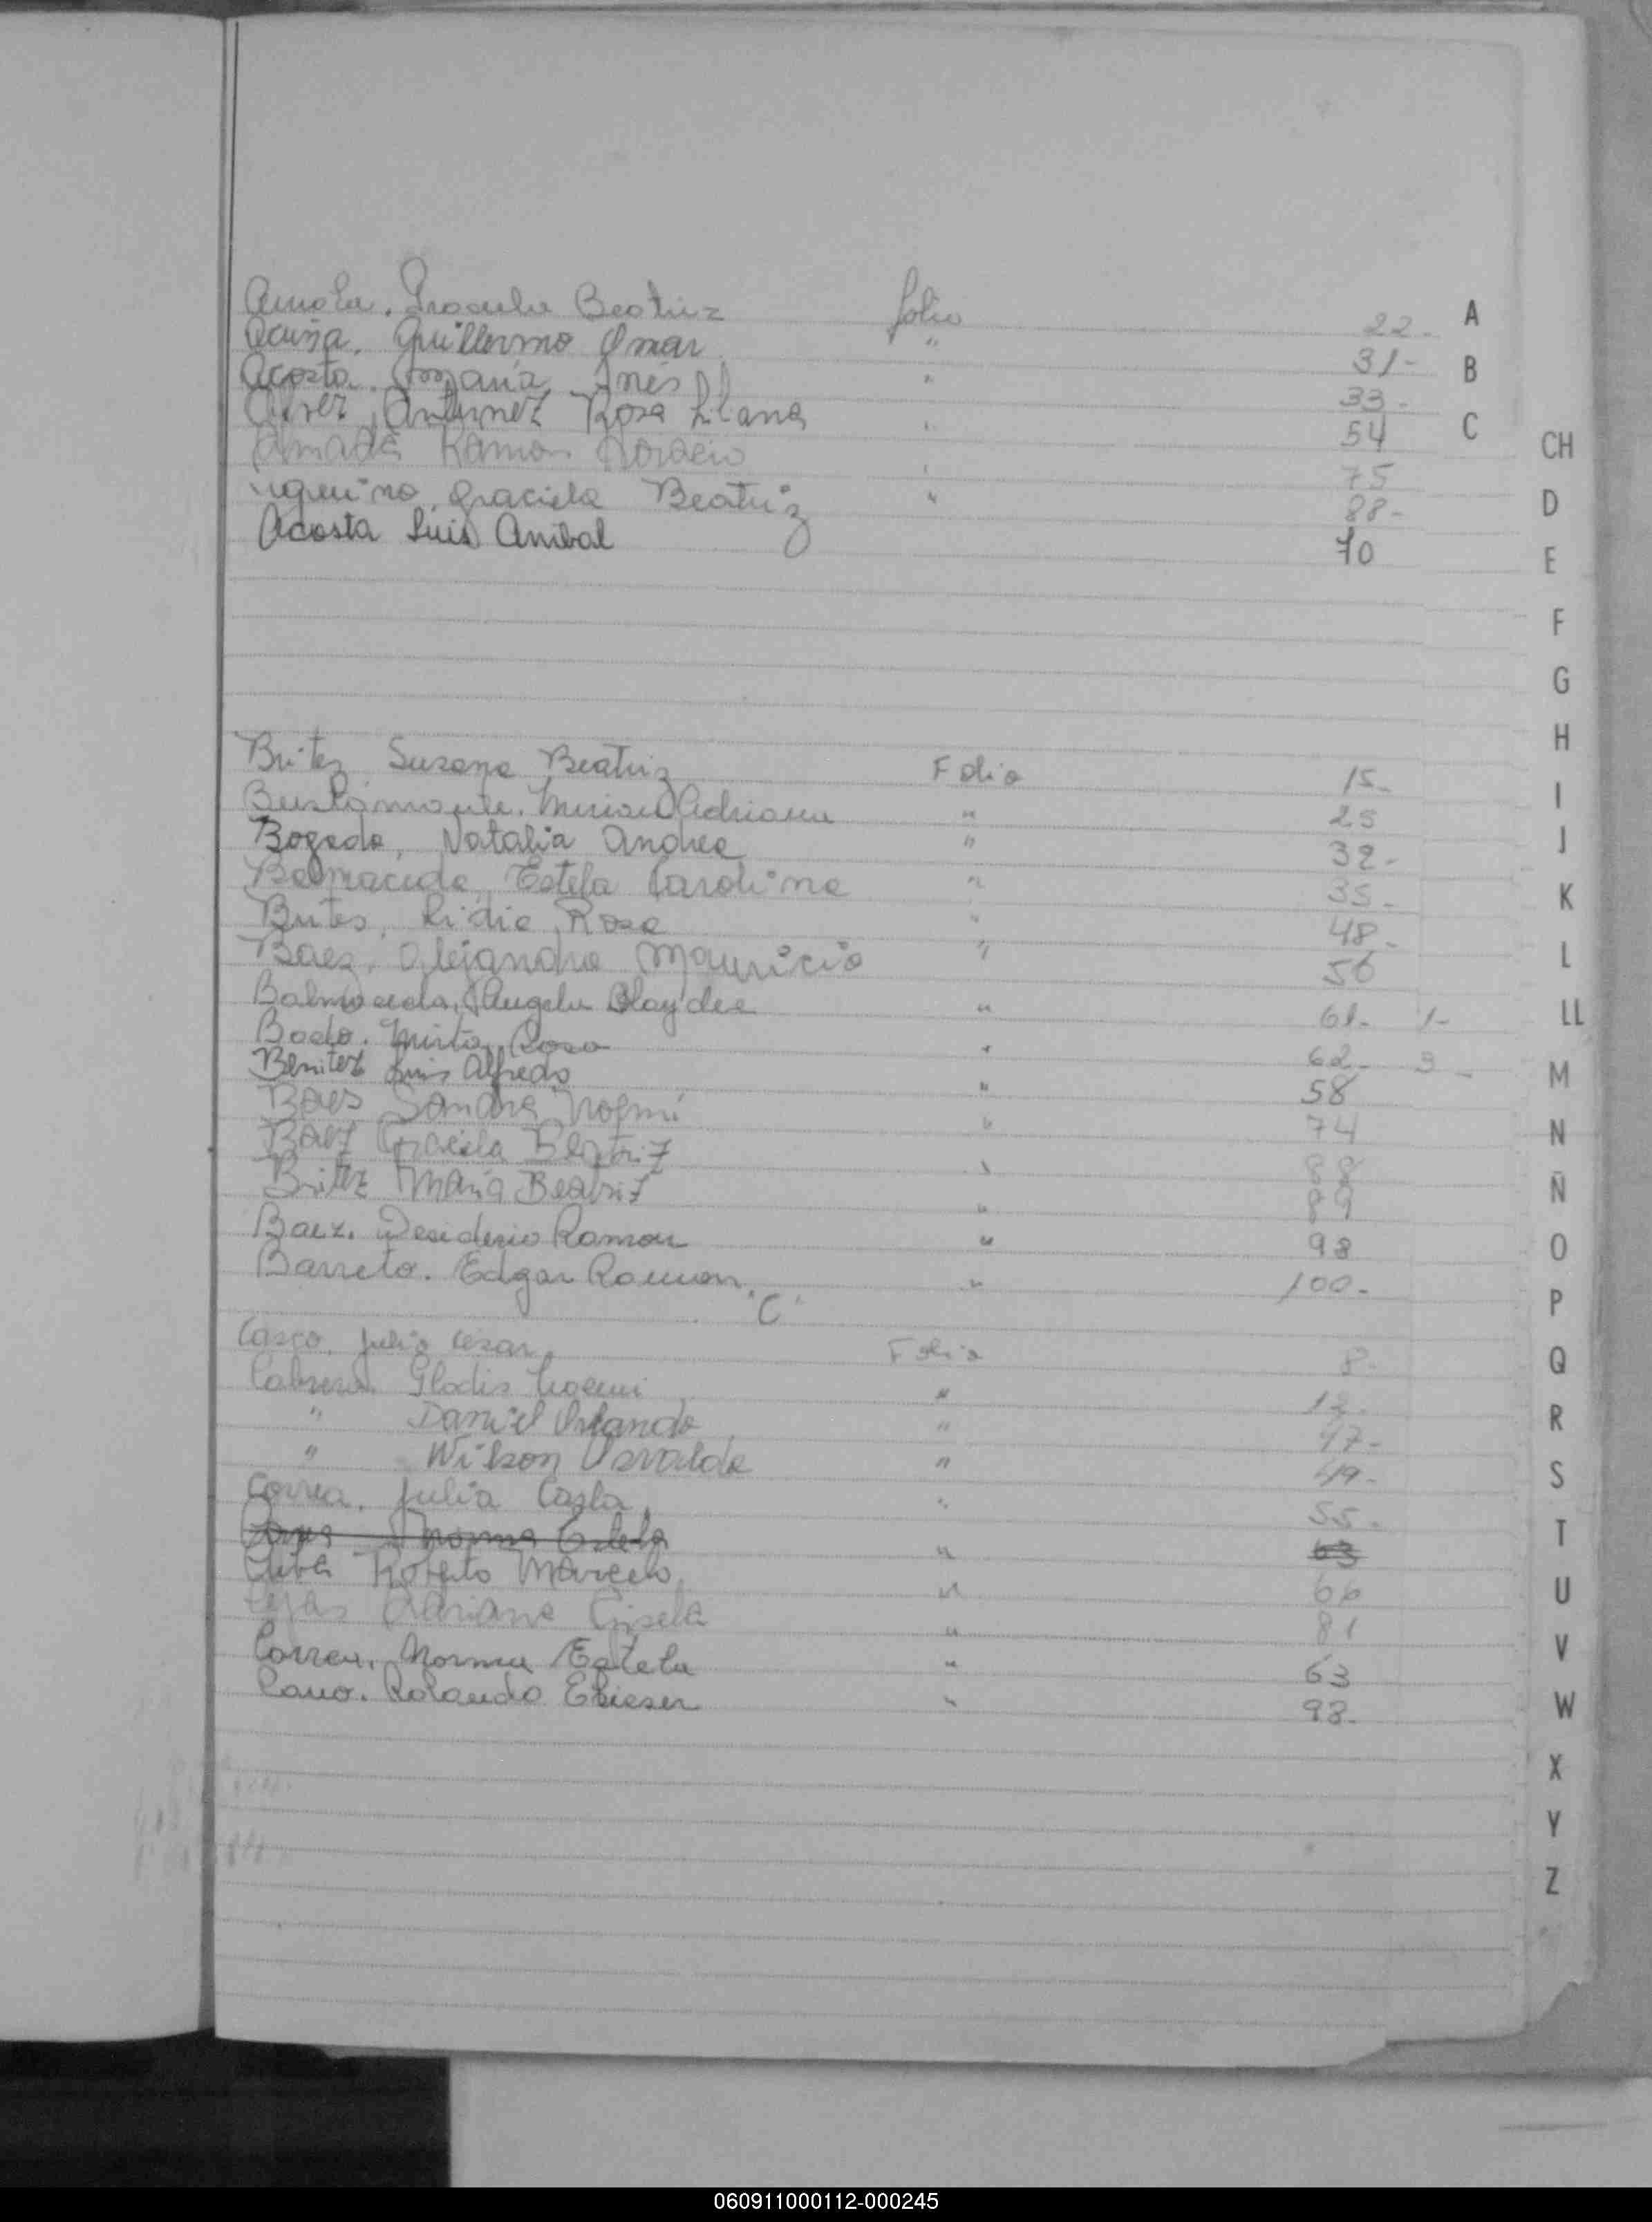 Beatriz folio 22-
Acuña, Guillermo Omar " 31-
Acosta, María Inés " 33-
Alvez, Antunez Rosa Liliana " 54
Amado Ramon Horacio " 75
Graciela Beatriz " 88-
Acosta Luis Anibal 70
Britez Susana Beatriz Folio 15-
Bustamante, Mirian Adriana " 25
Bogado, Natalia Andrea " 32-
Balmaceda, Estela Carolina " 35-
Brites, Lidia Rosa " 48-
Baez, Alejandro Mauricio " 56
Balmaceda, Angela Haydee " 61- 1-
Bodo. Mirta Rosa " 62- 3-
Benitez Luis Alfredo " 58
Baes Sandra Noemí " 74
Baez Graciela Beatriz " 88
Britez María Beatriz " 89
Baez. Desiderio Ramon " 98
Barreto. Edgar Ramon " 100-
"C"
Casco, Julio Cesar Folio 8-
Cabrera. Gladis Noemi " 12-
" Daniel Orlando " 47-
" Wilson Osvaldo " 49-
Correa, Julia Carla " 55-
Norma Estela " 63
Roberto Marcelo " 66
Adriana Gisela " 81
Correa, Norma Estela " 63
Cano. Rolando Eliezer " 98-
A
B
C
CH
D
E
F
G
H
I
J
K
L
LL
M
N
Ñ
O
P
Q
R
S
T
U
V
W
X
Y
Z
060911000112-000245